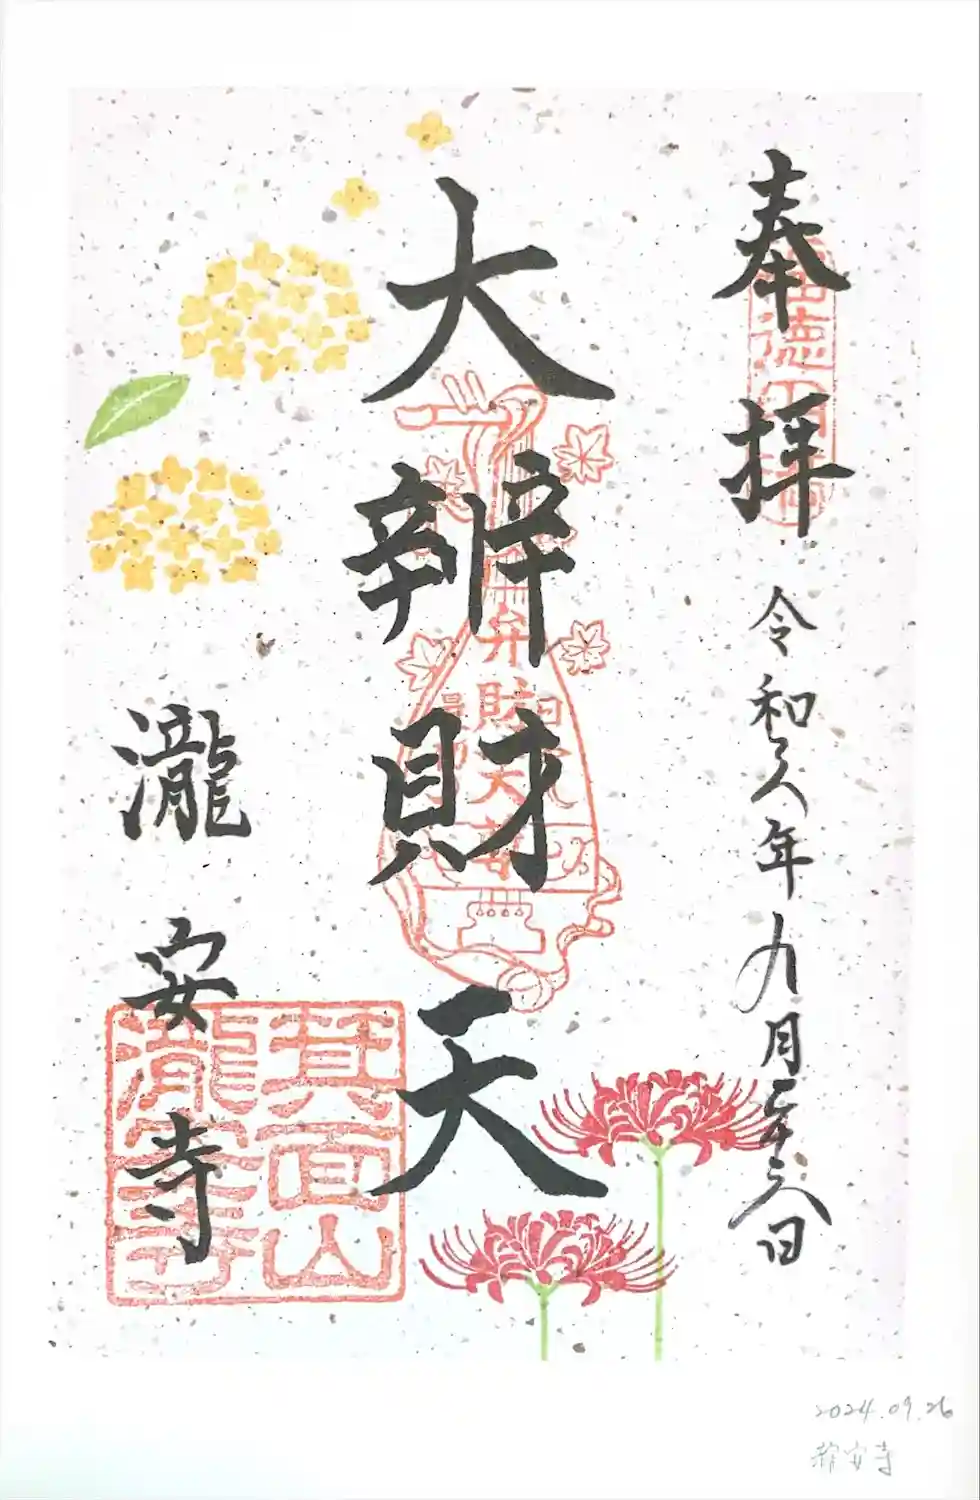 奉拝
令和六年九月二十六日
大辨財天
瀧安寺
弁財天
箕面山
瀧安寺
2024.09.26
安寺